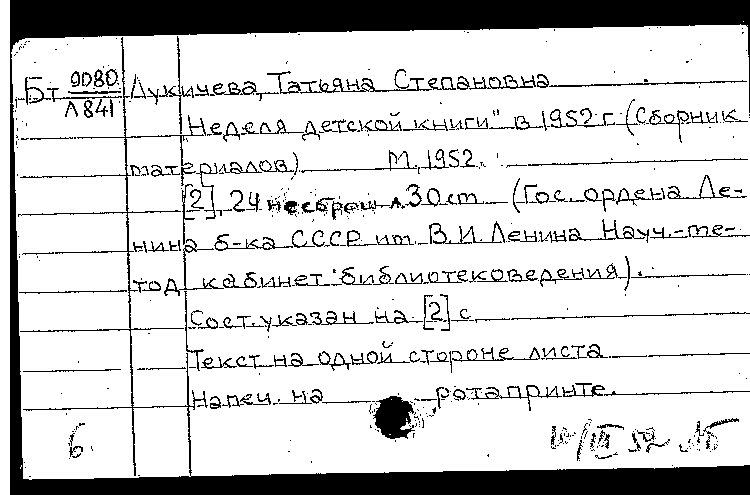 Бт 9080 Лукичева, Татьяна Степановна
Л841
"Неделя детской книги" в 1952 г (Сборник
материалов) М., 1952.
[2], 24 несброш л. 30 ст (Гос. ордена Ле-
нина б-ка СССР им. В.И. Ленина Науч.-ме-
тод кабинет библиотековедения).
Сост. указан на [2] с
Текст на одной стороне листа
Напеч. на ротапринте.
6. 52